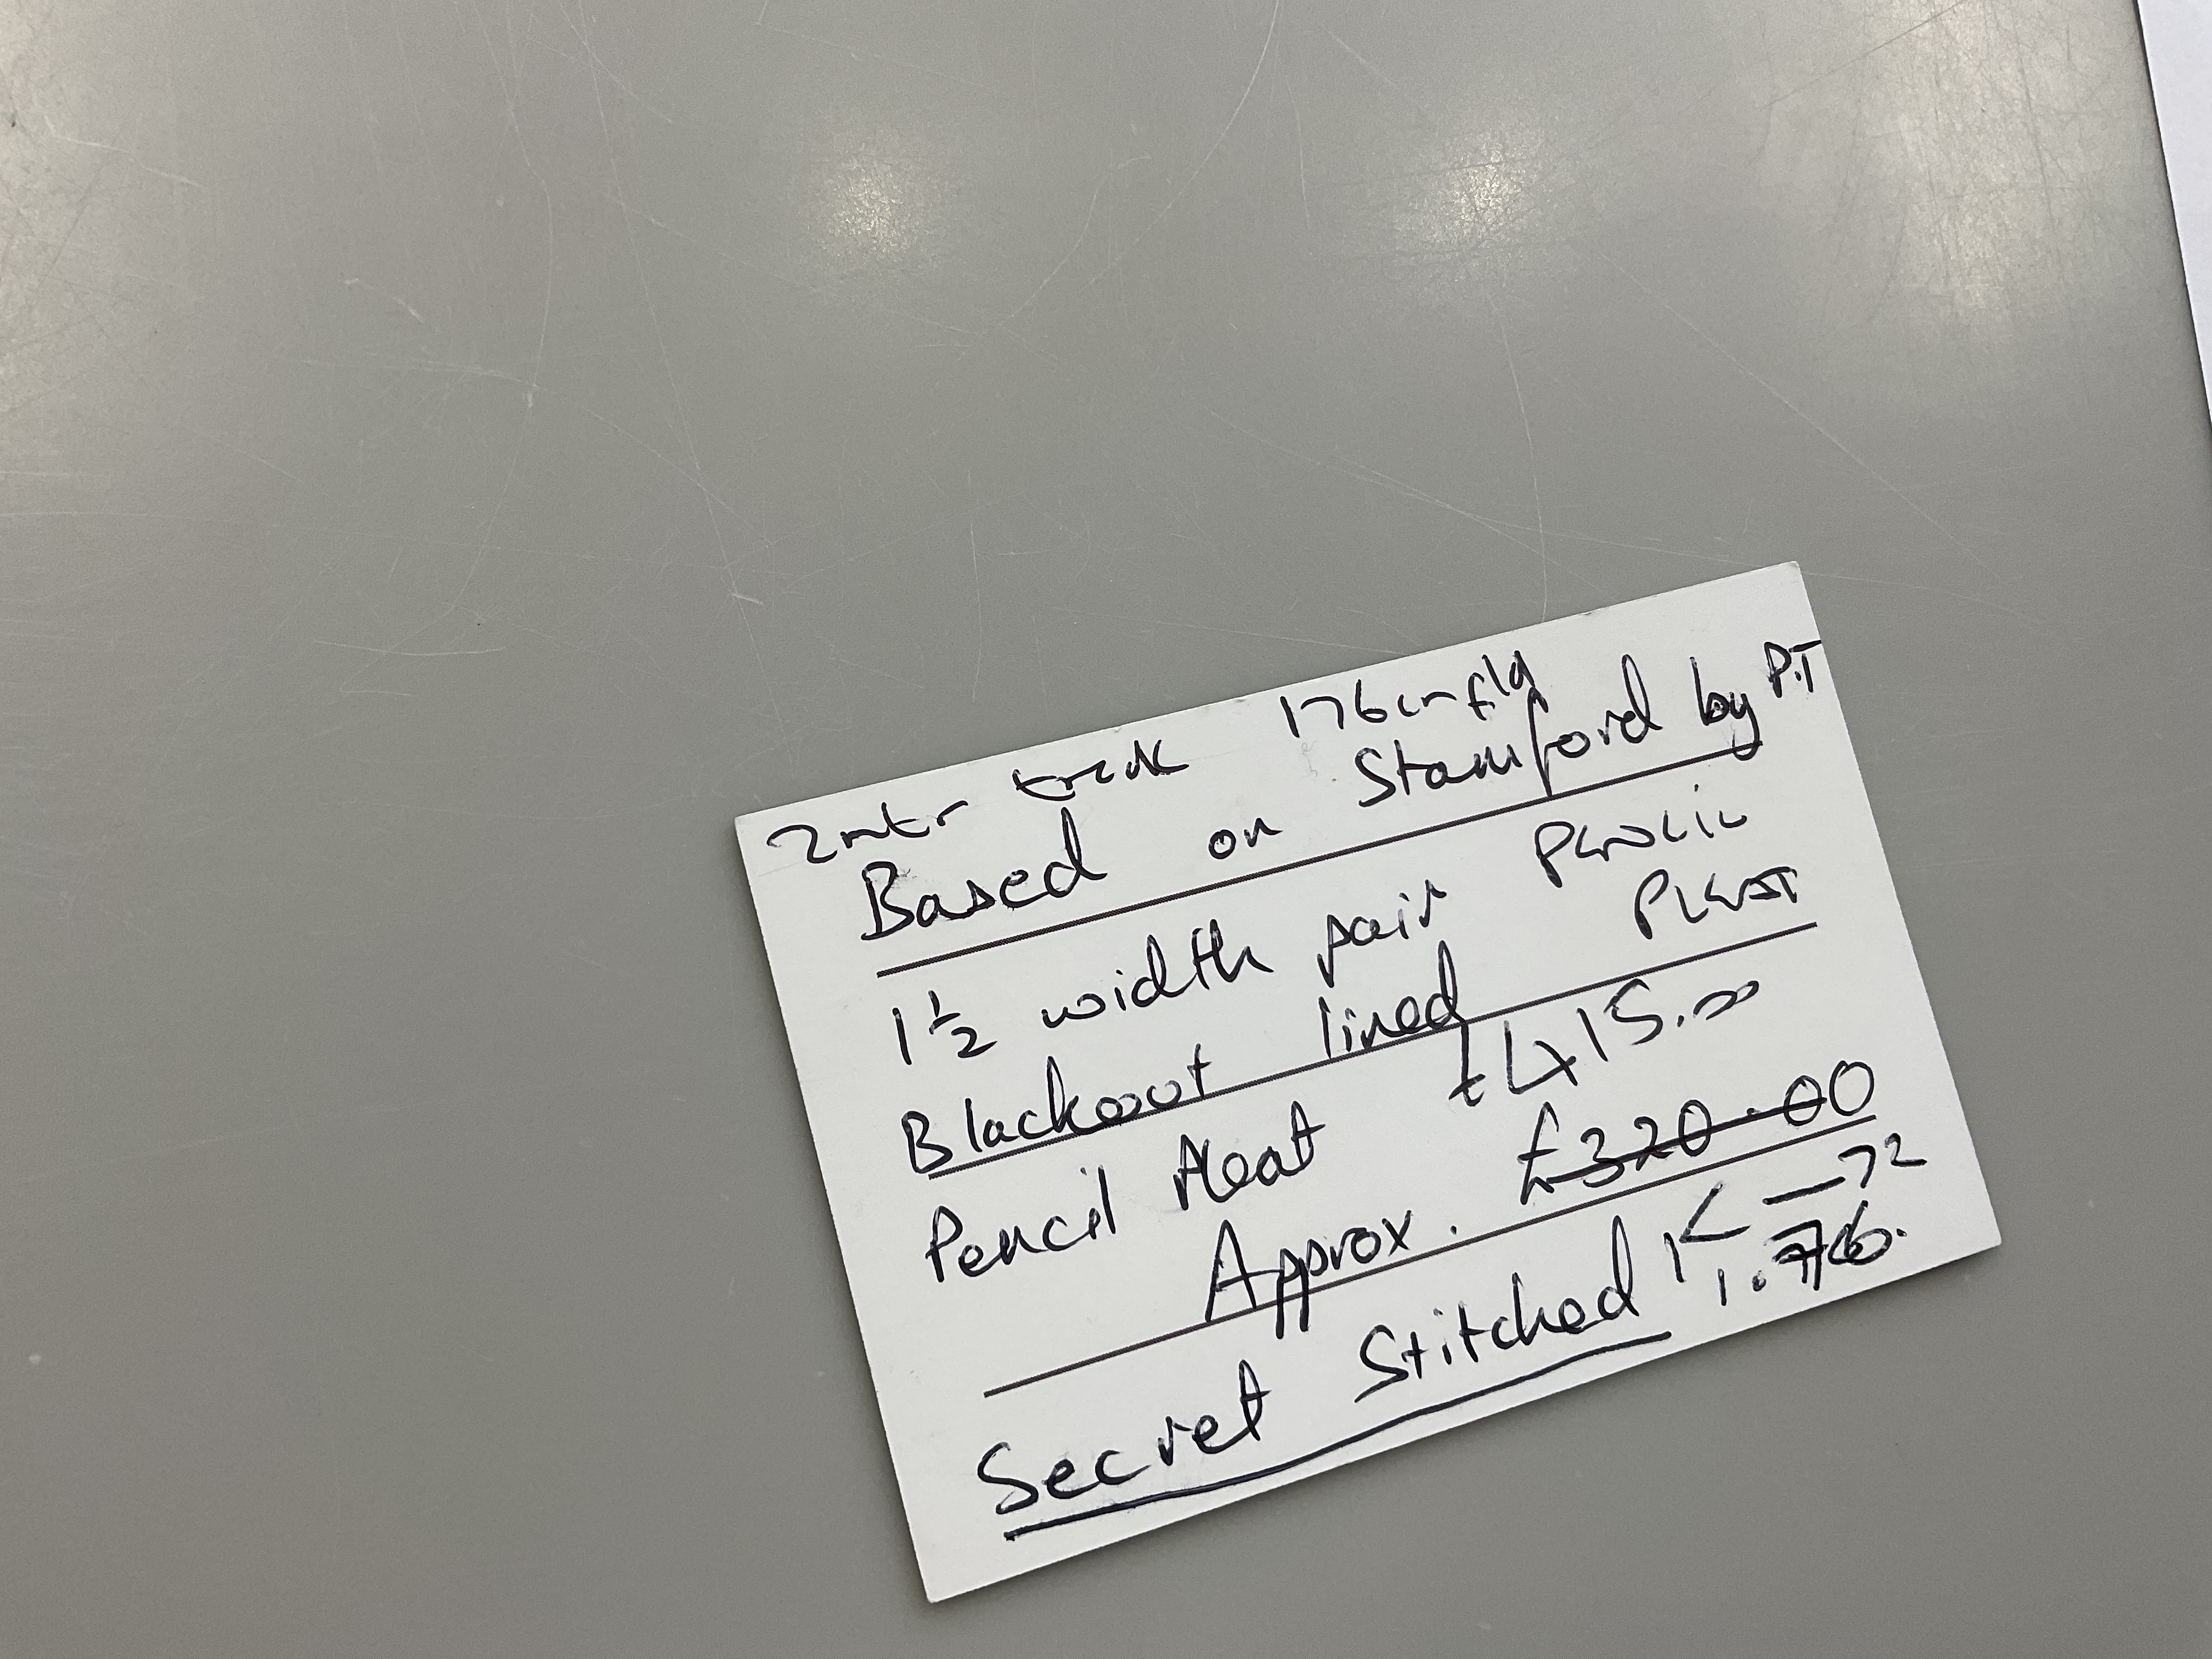 2mtr track 176cm fld
Based on Stamford by P.T
1½ width pair PENCIL
Blackout lined PLEAT
Pencil Pleat £415.00
Approx. £320.00
Secret Stitched 72
1.76.